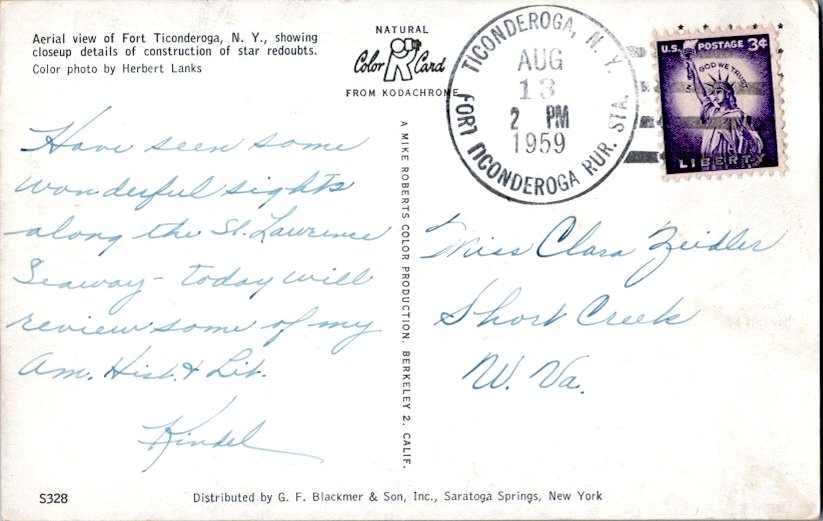 Aerial view of Fort Ticonderoga, N. Y., showing
closeup details of construction of star redoubts.
Color photo by Herbert Lanks
NATURAL
Color Card
FROM KODACHROME
TICONDEROGA, N. Y.
AUG
13
2 PM
1959
FORT TICONDEROGA RUR. STA.
U.S. POSTAGE 3¢
IN GOD WE TRUST
LIBERTY
Have seen some
wonderful sights
along the St. Lawrence
Seaway - today will
review some of my
Am. Hist. & Lit.
Kindel
A MIKE ROBERTS COLOR PRODUCTION. BERKELEY 2, CALIF.
Miss Clara Zeidler
Short Creek
W. Va.
S328
Distributed by G. F. Blackmer & Son, Inc., Saratoga Springs, New York